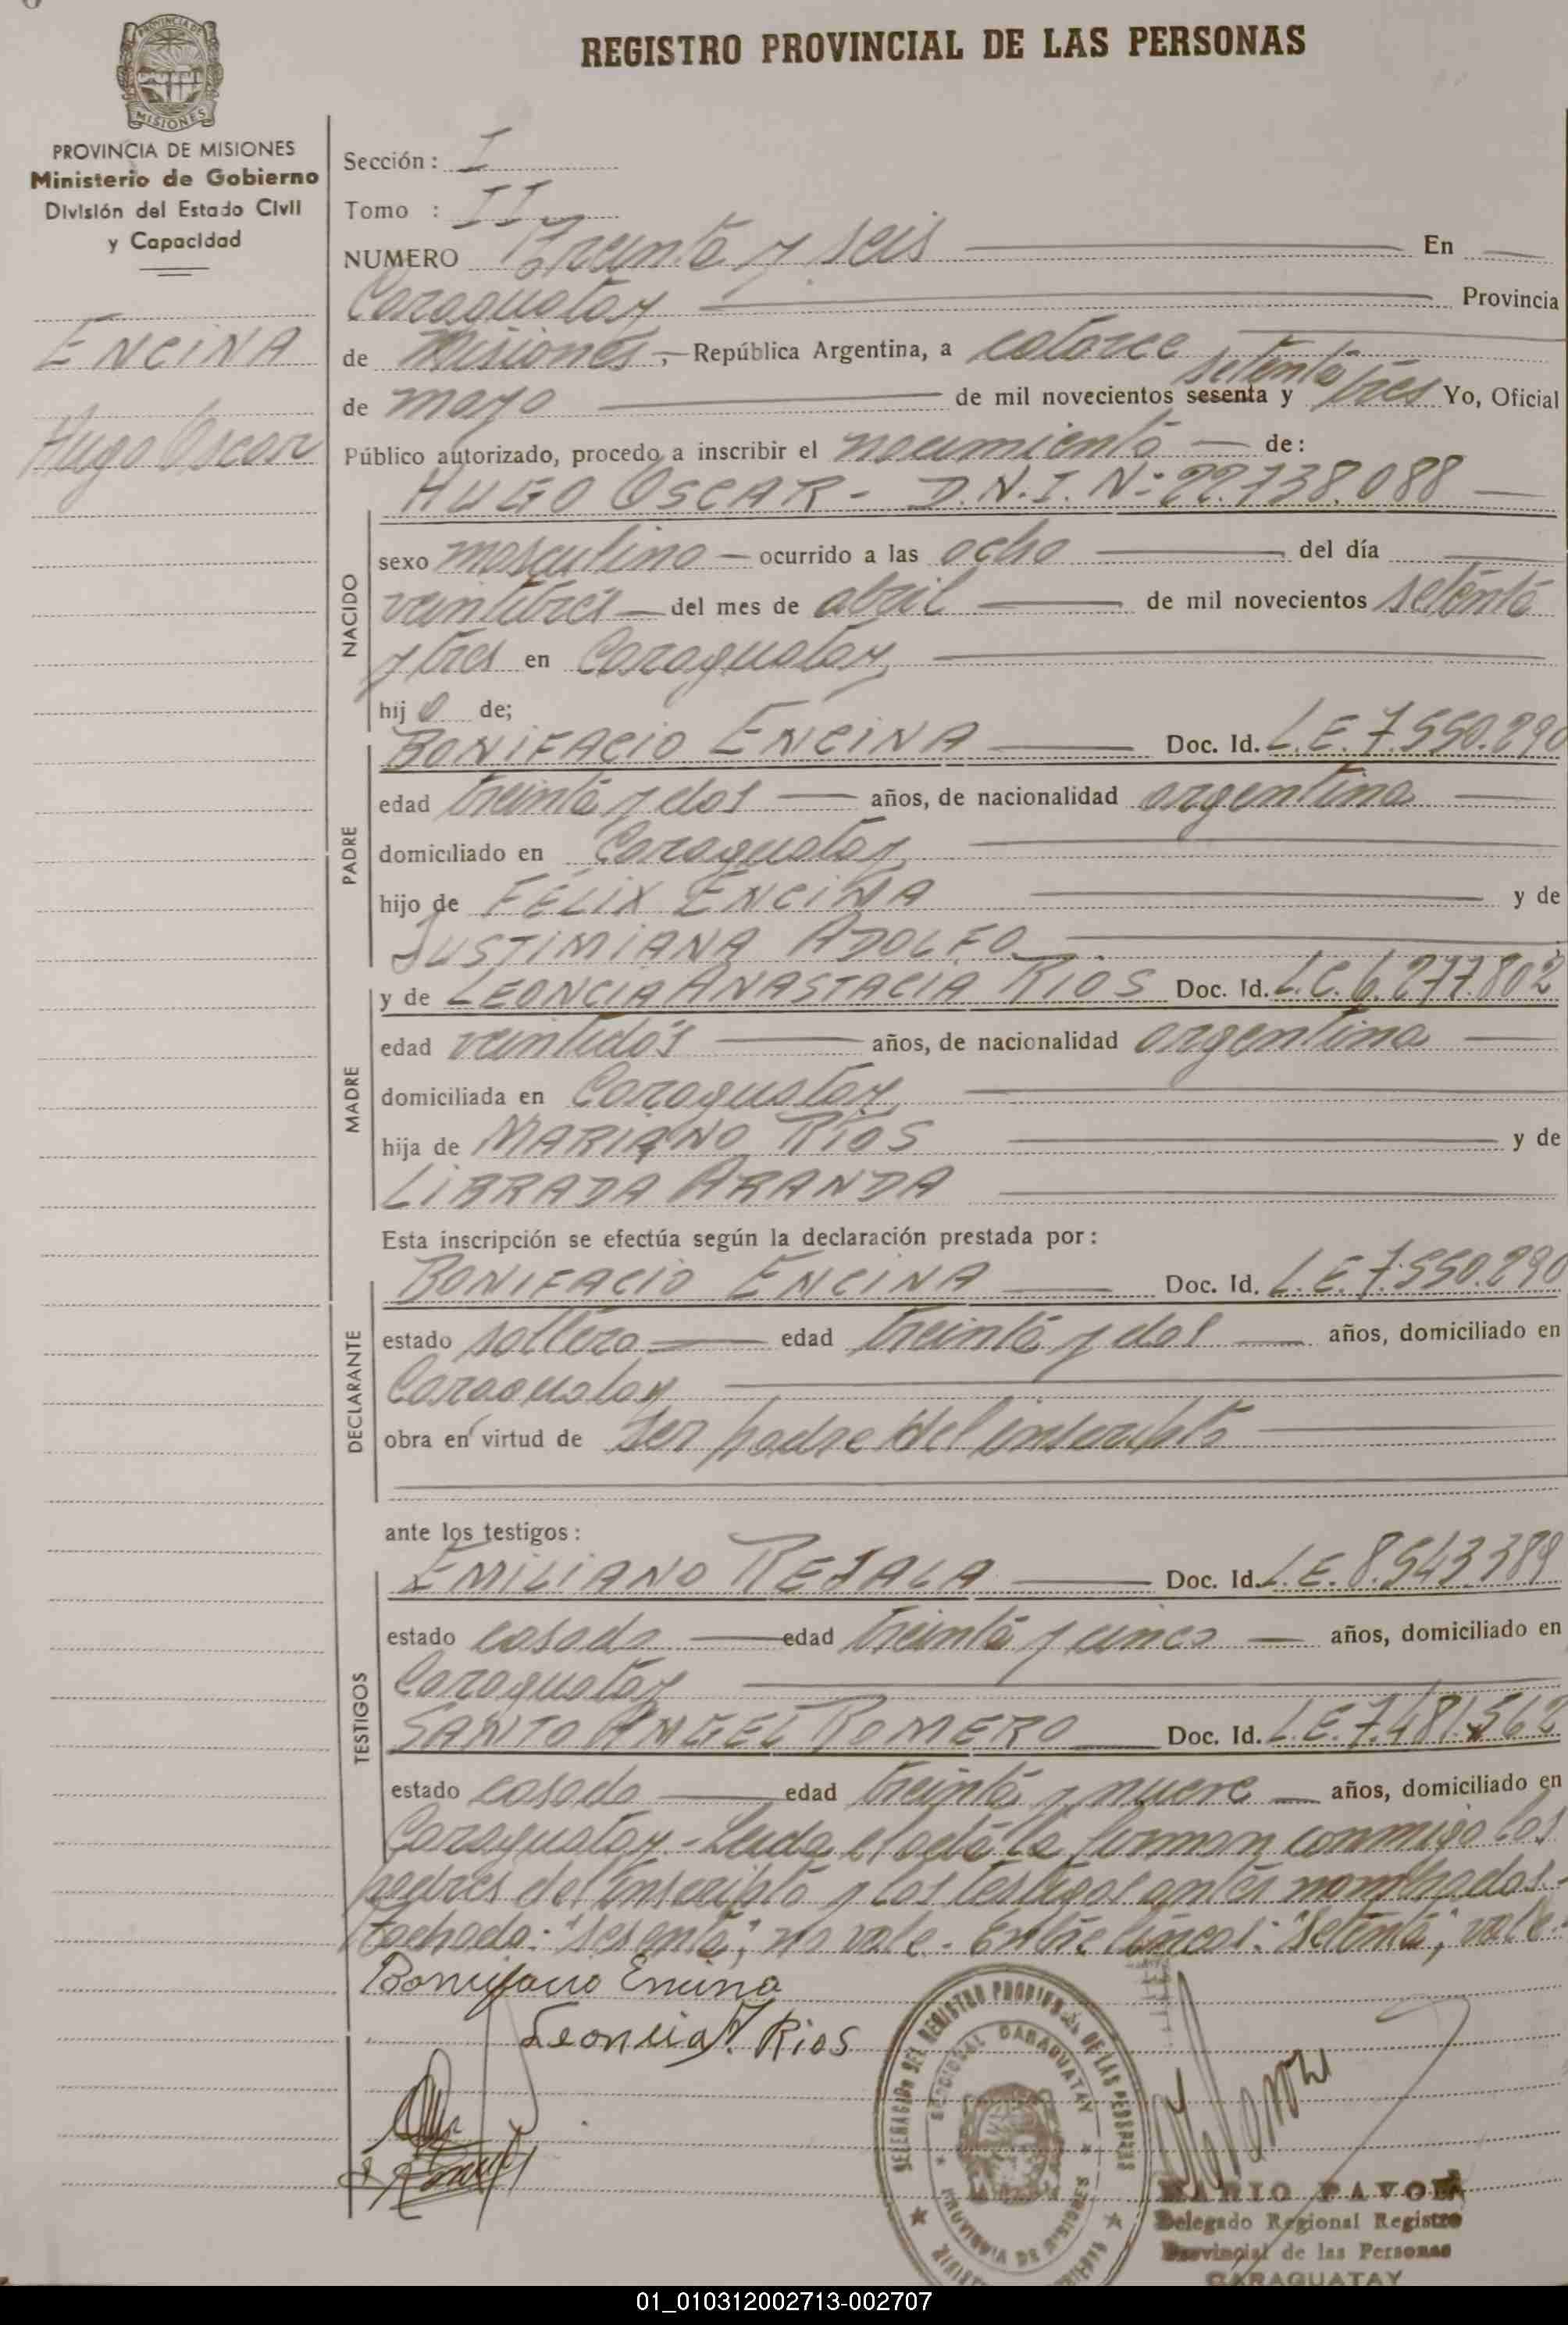 REGISTRO PROVINCIAL DE LAS PERSONAS
PROVINCIA DE
MISIONES
PROVINCIA DE MISIONES
Ministerio de Gobierno
División del Estado Civil
y Capacidad
ENCINA
Hugo Oscar
Sección : I
Tomo : II
NUMERO Treinta y seis En
Caraguatay Provincia
de Misiones, República Argentina, a catorce
setenta
de mayo de mil novecientos sesenta y tres Yo, Oficial
Público autorizado, procedo a inscribir el nacimiento de:
HUGO OSCAR - D.N.I. Nº 22.738.088
NACIDO
sexo masculino ocurrido a las ocho del día
veintitrés del mes de abril de mil novecientos setenta
y tres en Caraguatay
hij o de;
PADRE
BONIFACIO ENCINA Doc. Id. L.E. 7.550.290
edad treinta y dos años, de nacionalidad argentina
domiciliado en Caraguatay
hijo de FÉLIX ENCINA y de
JUSTIMIANA ADOLFO
MADRE
y de LEONCIA ANASTACIA RIOS Doc. Id. L.C. 6.277.802
edad veintidós años, de nacionalidad argentina
domiciliada en Caraguatay
hija de MARIANO RÍOS y de
LIBRADA ARANDA
Esta inscripción se efectúa según la declaración prestada por :
DECLARANTE
BONIFACIO ENCINA Doc. Id. L.E. 7.550.290
estado soltero edad treinta y dos años, domiciliado en
Caraguatay
obra en virtud de ser padre del inscripto
ante los testigos :
TESTIGOS
EMILIANO REJALA Doc. Id. L.E. 8.543.389
estado casado edad treinta y cinco años, domiciliado en
Caraguatay
SANTO ANGEL ROMERO Doc. Id. L.E. 7.481.362
estado casado edad treinta y nueve años, domiciliado en
Caraguatay - Leida el acta la firman conmigo los
padres del inscripto y los testigos antes nombrados.-
Tachado: "sesenta", no vale. Entre líneas: "setenta", vale.
Bonifacio Encina
Leoncia A. Rios
DELEGACION DEL REGISTRO PROVINCIAL DE LAS PERSONAS
SECCIONAL CARAGUATAY
PROVINCIA DE MISIONES
MARIO PAVON
Delegado Regional Registro
Provincial de las Personas
CARAGUATAY
01_010312002713-002707